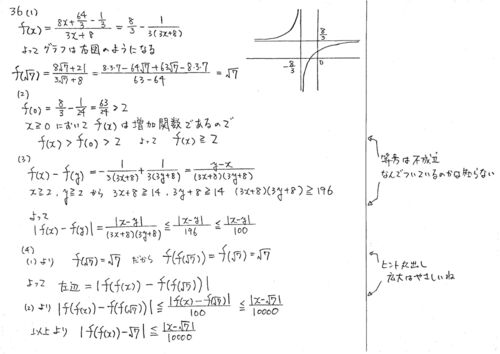 36 (1)
f(x) = (8x + 64/3 - 1/3)/(3x+8) = 8/3 - 1/(3(3x+8))
よってグラフは右図のようになる
8/3
-8/3
0
f(√7) = (8√7+21)/(3√7+8) = (8·3·7-64√7+63√7-8·3·7)/(63-64) = √7
(2)
f(0) = 8/3 - 1/24 = 63/24 > 2
x≧0 において f(x) は増加関数であるので
f(x) > f(0) > 2 よって f(x) ≧ 2
(3)
f(x) - f(y) = - 1/(3(3x+8)) + 1/(3(3y+8)) = (y-x)/((3x+8)(3y+8))
x≧2, y≧2 から 3x+8≧14, 3y+8≧14 (3x+8)(3y+8)≧196
よって
|f(x)-f(y)| = |x-y|/((3x+8)(3y+8)) ≦ |x-y|/196 ≦ |x-y|/100
等号は不成立
なんでついているのかは知らない
(4)
(1)より f(√7) = √7 だから f(f(√7)) = f(√7) = √7
よって 左辺 = |f(f(x)) - f(f(√7))|
(2)より |f(f(x)) - f(f(√7))| ≦ |f(x)-f(√7)|/100 ≦ |x-√7|/10000
以上より |f(f(x))-√7| ≦ |x-√7|/10000
ヒント丸出し
広大はやさしいね